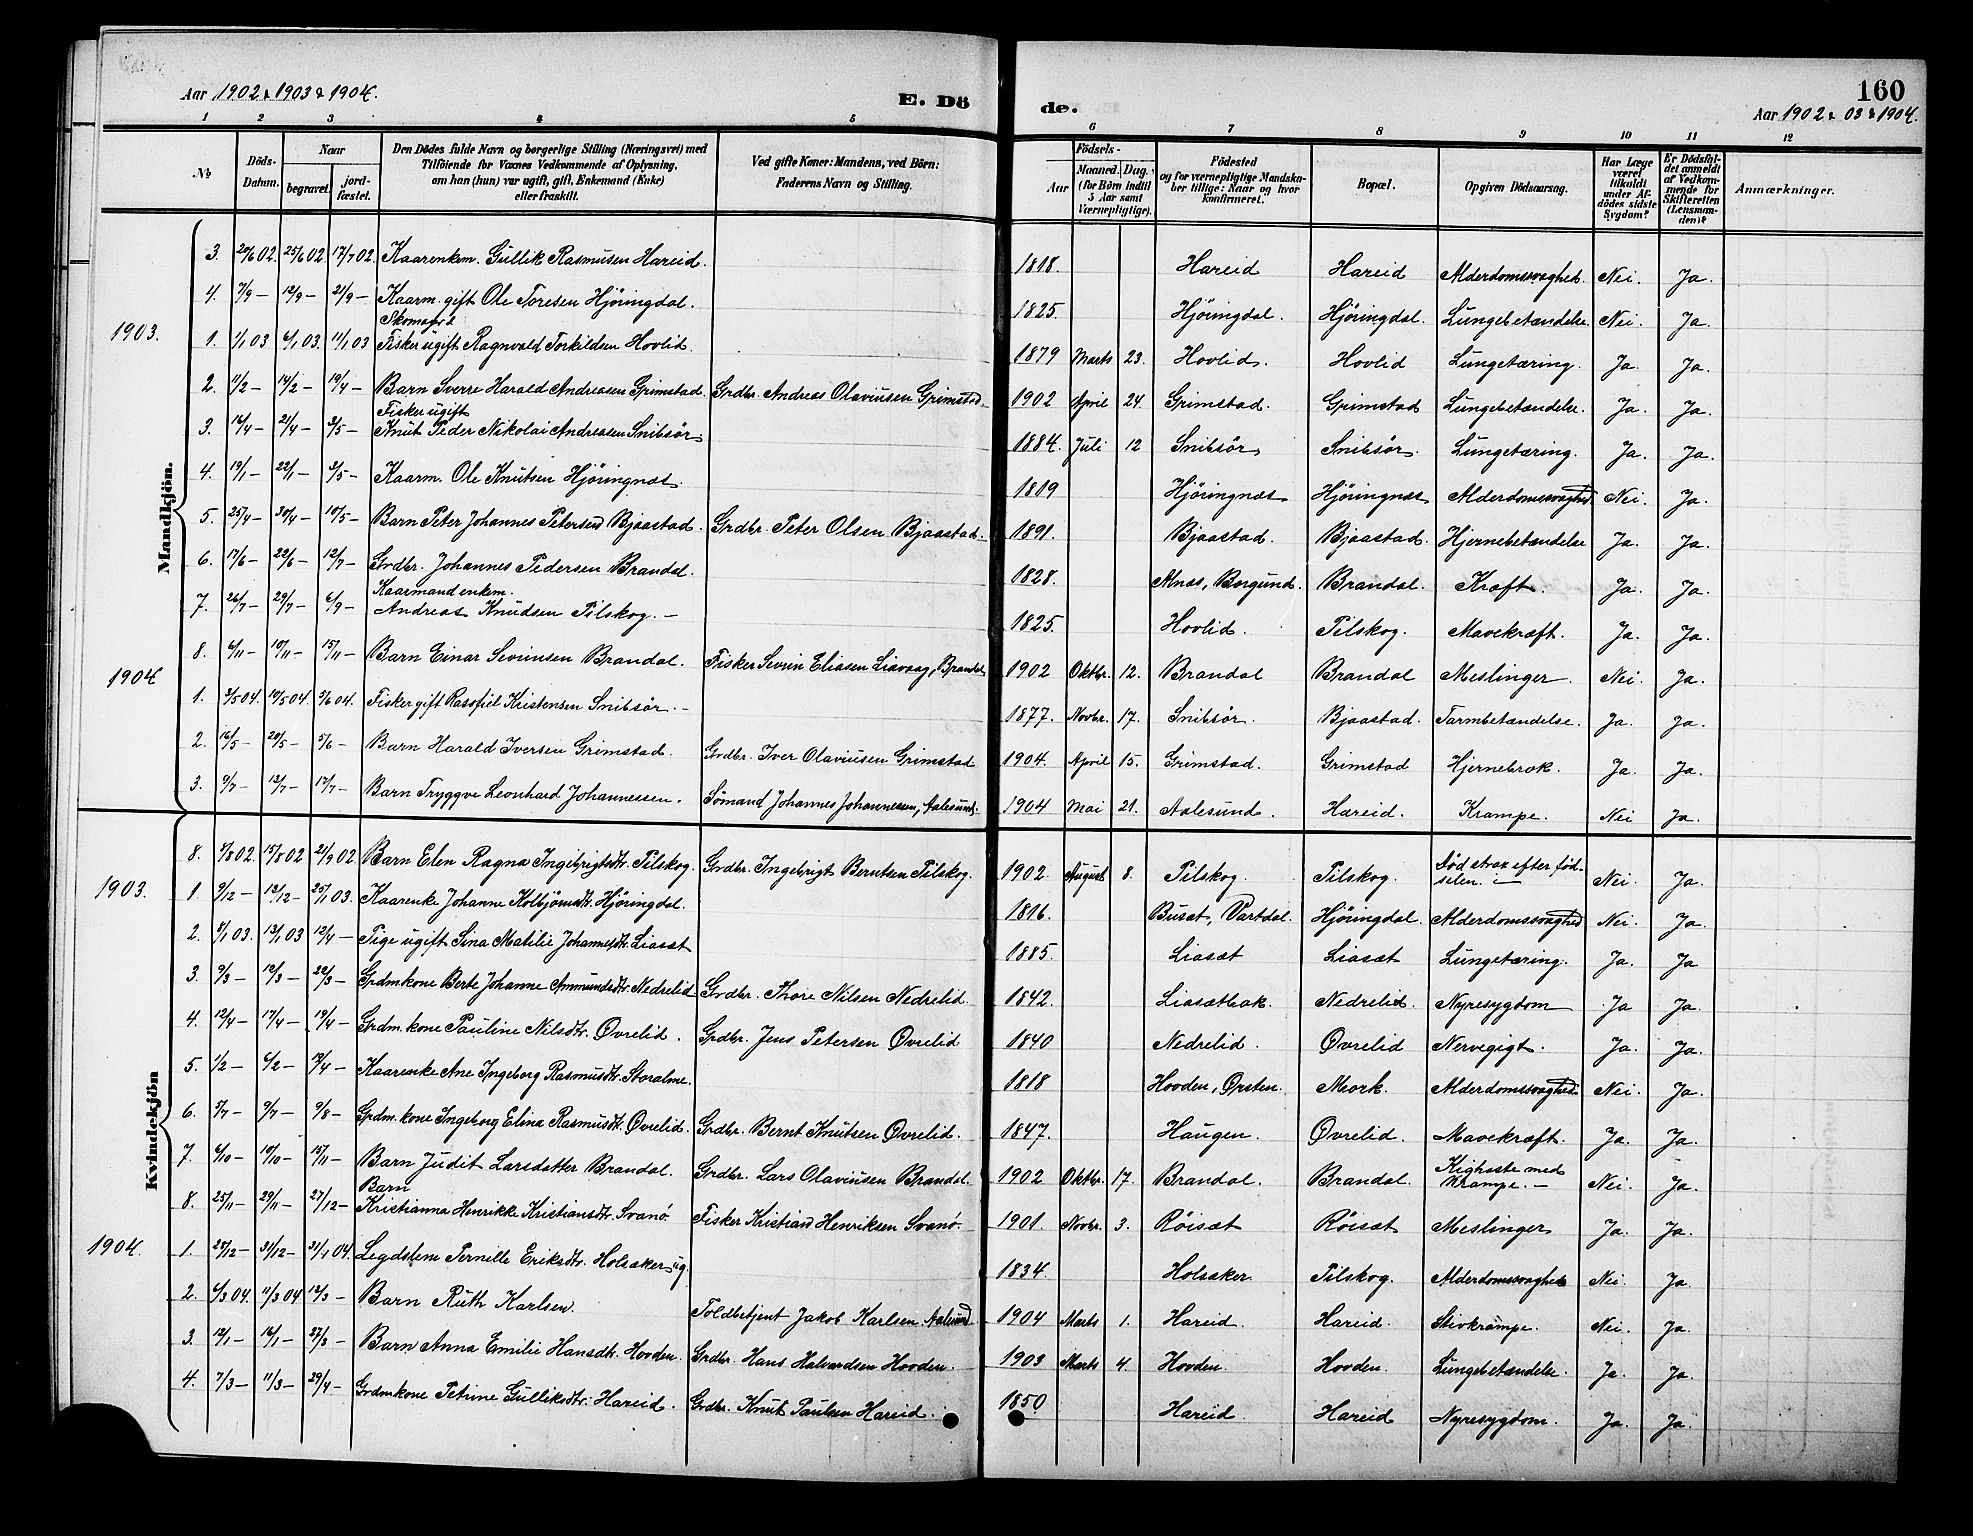 Aar 1902 & 1903 & 1904.
E. Dö
de.
160
Aar 1902 & 03 & 1904.
1 2 3 4 5 6 7 8 9 10 11 12
No
Döds-Datum.
Naar
begravet.
jord-fæstet.
Den Dödes fulde Navn og borgerlige Stilling (Næringsvei) med
Tilföiende for Voxnes Vedkommende af Oplysning,
om han (hun) var ugift, gift, Enkemand (Enke)
eller fraskilt.
Ved gifte Koner: Mandens, ved Börn:
Faderens Navn og Stilling.
Födsels-
Aar
Maaned. Dag.
(for Börn indtil
5 Aar samt
Værnepligtige).
Födested
og for værnepligtige Mandska-
ber tillige: Naar og hvor
konfirmeret.
Bopæl.
Opgiven Dödsaarsag.
Har Læge
været
tilkaldt
under Af-
dödes sidste
Sygdom?
Er Dödsfal-
det anmeldt
af Vedkom-
mende for
Skifteretten
(Lensman-
den)?
Anmærkninger.
Mandkjön.
3. 20/6 02 25/6 02 17/7 02 Kaarenkm. Gullik Rasmusen Hareid. 1818. Hareid Hareid Alderdomssvaghed. Nei. Ja.
4. 7/9 — 12/9 — 21/9 — Kaarm. gift Ole Toresen Hjöringdal. 1825. Hjöringdal. Hjöringdal. Lungebetændelse. Nei. Ja.
1903.
1. 1/1 03 6/1 03 11/1 03 Fisker ugift Ragnvald Torkildsen Hovlid. 1879 Marts 23. Hovlid. Hovlid Lungetæring. Ja. Ja.
2. 11/2 — 14/2 — 19/4 — Barn Sverre Harald Andreasen Grimstad. Grdbr. Andreas Olaviusen Grimstad. 1902 April 24. Grimstad. Grimstad Lungebetændelse. Ja. Ja.
Fisker ugift
3. 16/4 — 21/4 — 3/5 — Knut Peder Nikolai Andreasen Snibsör 1884. Juli 12 Snibsör Snibsör. Lungetæring. Ja. Ja.
4. 19/1 — 22/1 — 3/5 — Kaarm. Ole Knutsen Hjöringnæs. 1819 Hjöringnæs Hjöringnæs Alderdomssvaghed Nei. Ja.
5. 25/4 — 30/4 — 10/5 — Barn Peter Johannes Petersen Bjaastad. Grdbr. Peter Olsen Bjaastad. 1891. Bjaastad. Bjaastad. Hjernebetændelse Ja. Ja.
6. 17/6 — 22/6 — 12/7 — Grdbr. Johannes Pedersen Brandal. 1828. Alnæs, Borgund. Brandal. Kræft. Ja. Ja.
Kaarmand enkem.
7. 26/7 — 29/7 — 6/9 — Andreas Knudsen Pilskog. — 1825. Hovlid. Pilskog. Mavekræft. Ja. Ja.
8. 6/11 — 10/11 — 15/11 — Barn Einar Sevrinsen Brandal. Fisker Sevrin Eliasen Liavaag, Brandal 1902 Oktbr. 12. Brandal Brandal Meslinger. Nei. Ja.
1904
1. 3/5 04. 10/5 04. 5/6 04. Fisker gift Rasmus Kristensen Snibsör. — 1877. Novbr. 17. Snibsör. Bjaastad. Tarmbetændelse. Ja. Ja.
2. 16/5 — 20/5 — 5/6 — Barn Harald Iversen Grimstad. Grdbr. Iver Olaviusen Grimstad 1904. April 15. Grimstad. Grimstad Hjernebrok. Ja. Ja.
3. 9/7 — 13/7 — 17/7 — Barn Tryggve Leonhard Johannessen. Sömand Johannes Johannessen, Aalesund. 1904 Mai 21. Aalesund. Hareid. Krampe. Nei Ja.
Kvindekjön
8. 8/8 02. 15/8 02 21/9 02 Barn Elen Ragna Ingebrigtsdtr. Pilskog. Grdbr. Ingebrigt Berntsen Pilskog. 1902 August 8. Pilskog. Pilskog. Död strax efter föd-
selen. — Nei. Ja.
1903.
1. 9/12 — 13/12 — 25/1 03. Kaarenke Johanne Kolbjörnsdtr. Hjöringdal. 1816. Busæt, Vartdal. Hjöringdal. Alderdomssvaghed Nei. Ja.
2. 8/1 03. 13/1 03 12/4 — Pige ugift Sina Matilie Johannesdtr. Liasæt 1885. Liasæt Liasæt Lungetæring. Ja. Ja
3. 9/3 — 12/3 — 22/3 — Grdmkone Berte Johanne Ammundsdtr. Nedrelid Grdbr. Thore Nilsen Nedrelid. 1842. Liasætbak. Nedrelid Nyresygdom Ja Ja.
4. 12/4 — 17/4 — 19/4 — Grdm. kone Pauline Nilsdtr. Øvrelid. Grdbr. Jens Petersen Øvrelid 1840 Nedrelid. Øvrelid Nervegigt. Ja. Ja.
5. 1/2 — 6/2 — 19/4 — Kaarenke Ane Ingeborg Rasmusdtr. Storalme. 1818 Hovden, Ørsten. Mork. Alderdomssvaghed Nei. Ja.
6. 5/7 — 9/7 — 9/8 — Grdm. kone Ingeborg Elina Rasmusdtr. Øvrelid. Grdbr. Bernt Knutsen Øvrelid. 1847. Haugen. Øvrelid. Mavekræft. Ja. Ja.
7. 6/10 — 10/10 — 15/11 — Barn Judit Larsdatter Brandal. Grdbr. Lars Olaviusen Brandal. 1902 Oktbr. 17. Brandal. Brandal. Kighoste med
Krampe. — Nei. Ja.
Barn
8. 25/11 — 29/11 — 27/12 — Kristianna Henrikke Kristiansdtr. Svanö. Fisker Kristian Henriksen Svanö. 1901. Novbr. 3. Röisæt Röisæt Meslinger Ja. Ja.
1904.
1. 25/12 — 31/12 — 31/1 04. Legdslem Pernille Eriksdtr. Holsæker ug. 1834. Holsæker. Pilskog. Alderdomssvaghed Nei. Ja.
2. 6/3 04. 11/3 04 13/3 — Barn Ruth Karlsen. Toldbetjent Jakob Karlsen Aalesund. 1904 Marts 1. Hareid. Hareid. Stivkrampe. Nei. Ja.
3. 12/1 — 16/1 — 27/3 — Barn Anna Emilie Hansdtr. Hovden. Grdbr. Hans Halvardsen Hovden. 1903 Marts 4. Hovden. Hovden. Lungebetændelse. Ja. Ja.
4. 7/3 — 11/3 — 29/4 — Grdmkone Petrine Gulliksdtr. Hareid. Grdbr. Knut Paulsen Hareid. 1850. Hareid Hareid Nyresygdom. Ja. Ja.